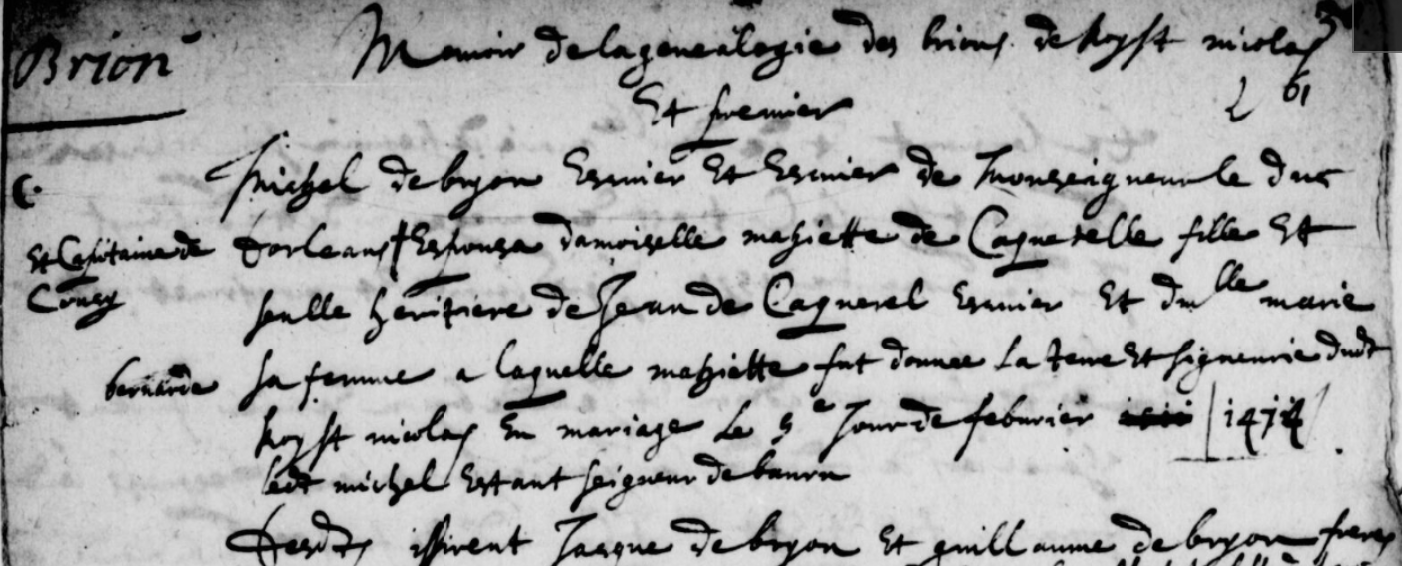 Brion
Memoir de la genealogie des brions de hoyst nicolas
61
Et premier
Michel de bryon Escuier Et Escuier de Monseigneur le duc
Et Capitaine de
Coucy
Dorleans Espousa damoiselle mahiette de Caquerelle fille Et
seulle heritiere de Jean de Caquerel Escuier Et dlle marie
bernarde
sa femme a laquelle mahiette fut donnee La terre Et signeurie dudt
hoyst nicolas En mariage Le 5e Jour de febvrier 1474
ledt michel Estant seigneur de
Desdts issirent Jacque de bryon Et guillaume de bryon freres